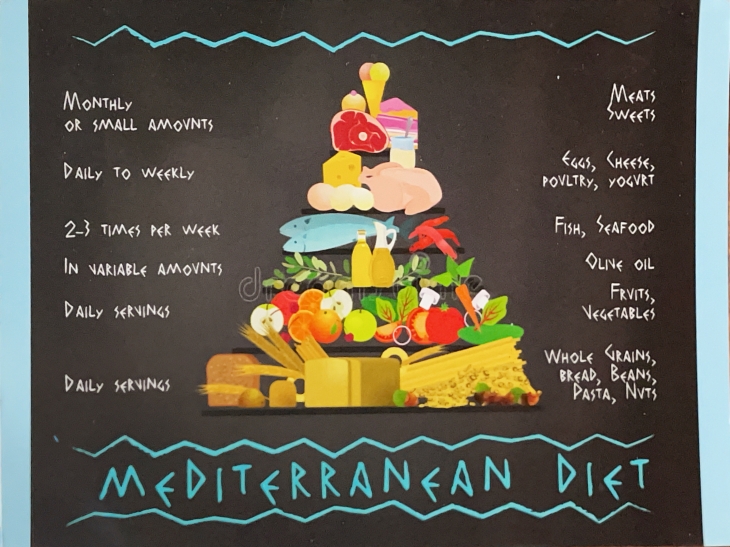 Monthly
or small amounts
Meats
Sweets
Daily to weekly
Eggs, Cheese,
poultry, yogurt
2-3 times per week
Fish, Seafood
In variable amounts
Olive oil
Daily servings
Fruits,
Vegetables
Daily servings
Whole Grains,
bread, Beans,
Pasta, Nuts
dreamstime
Mediterranean Diet